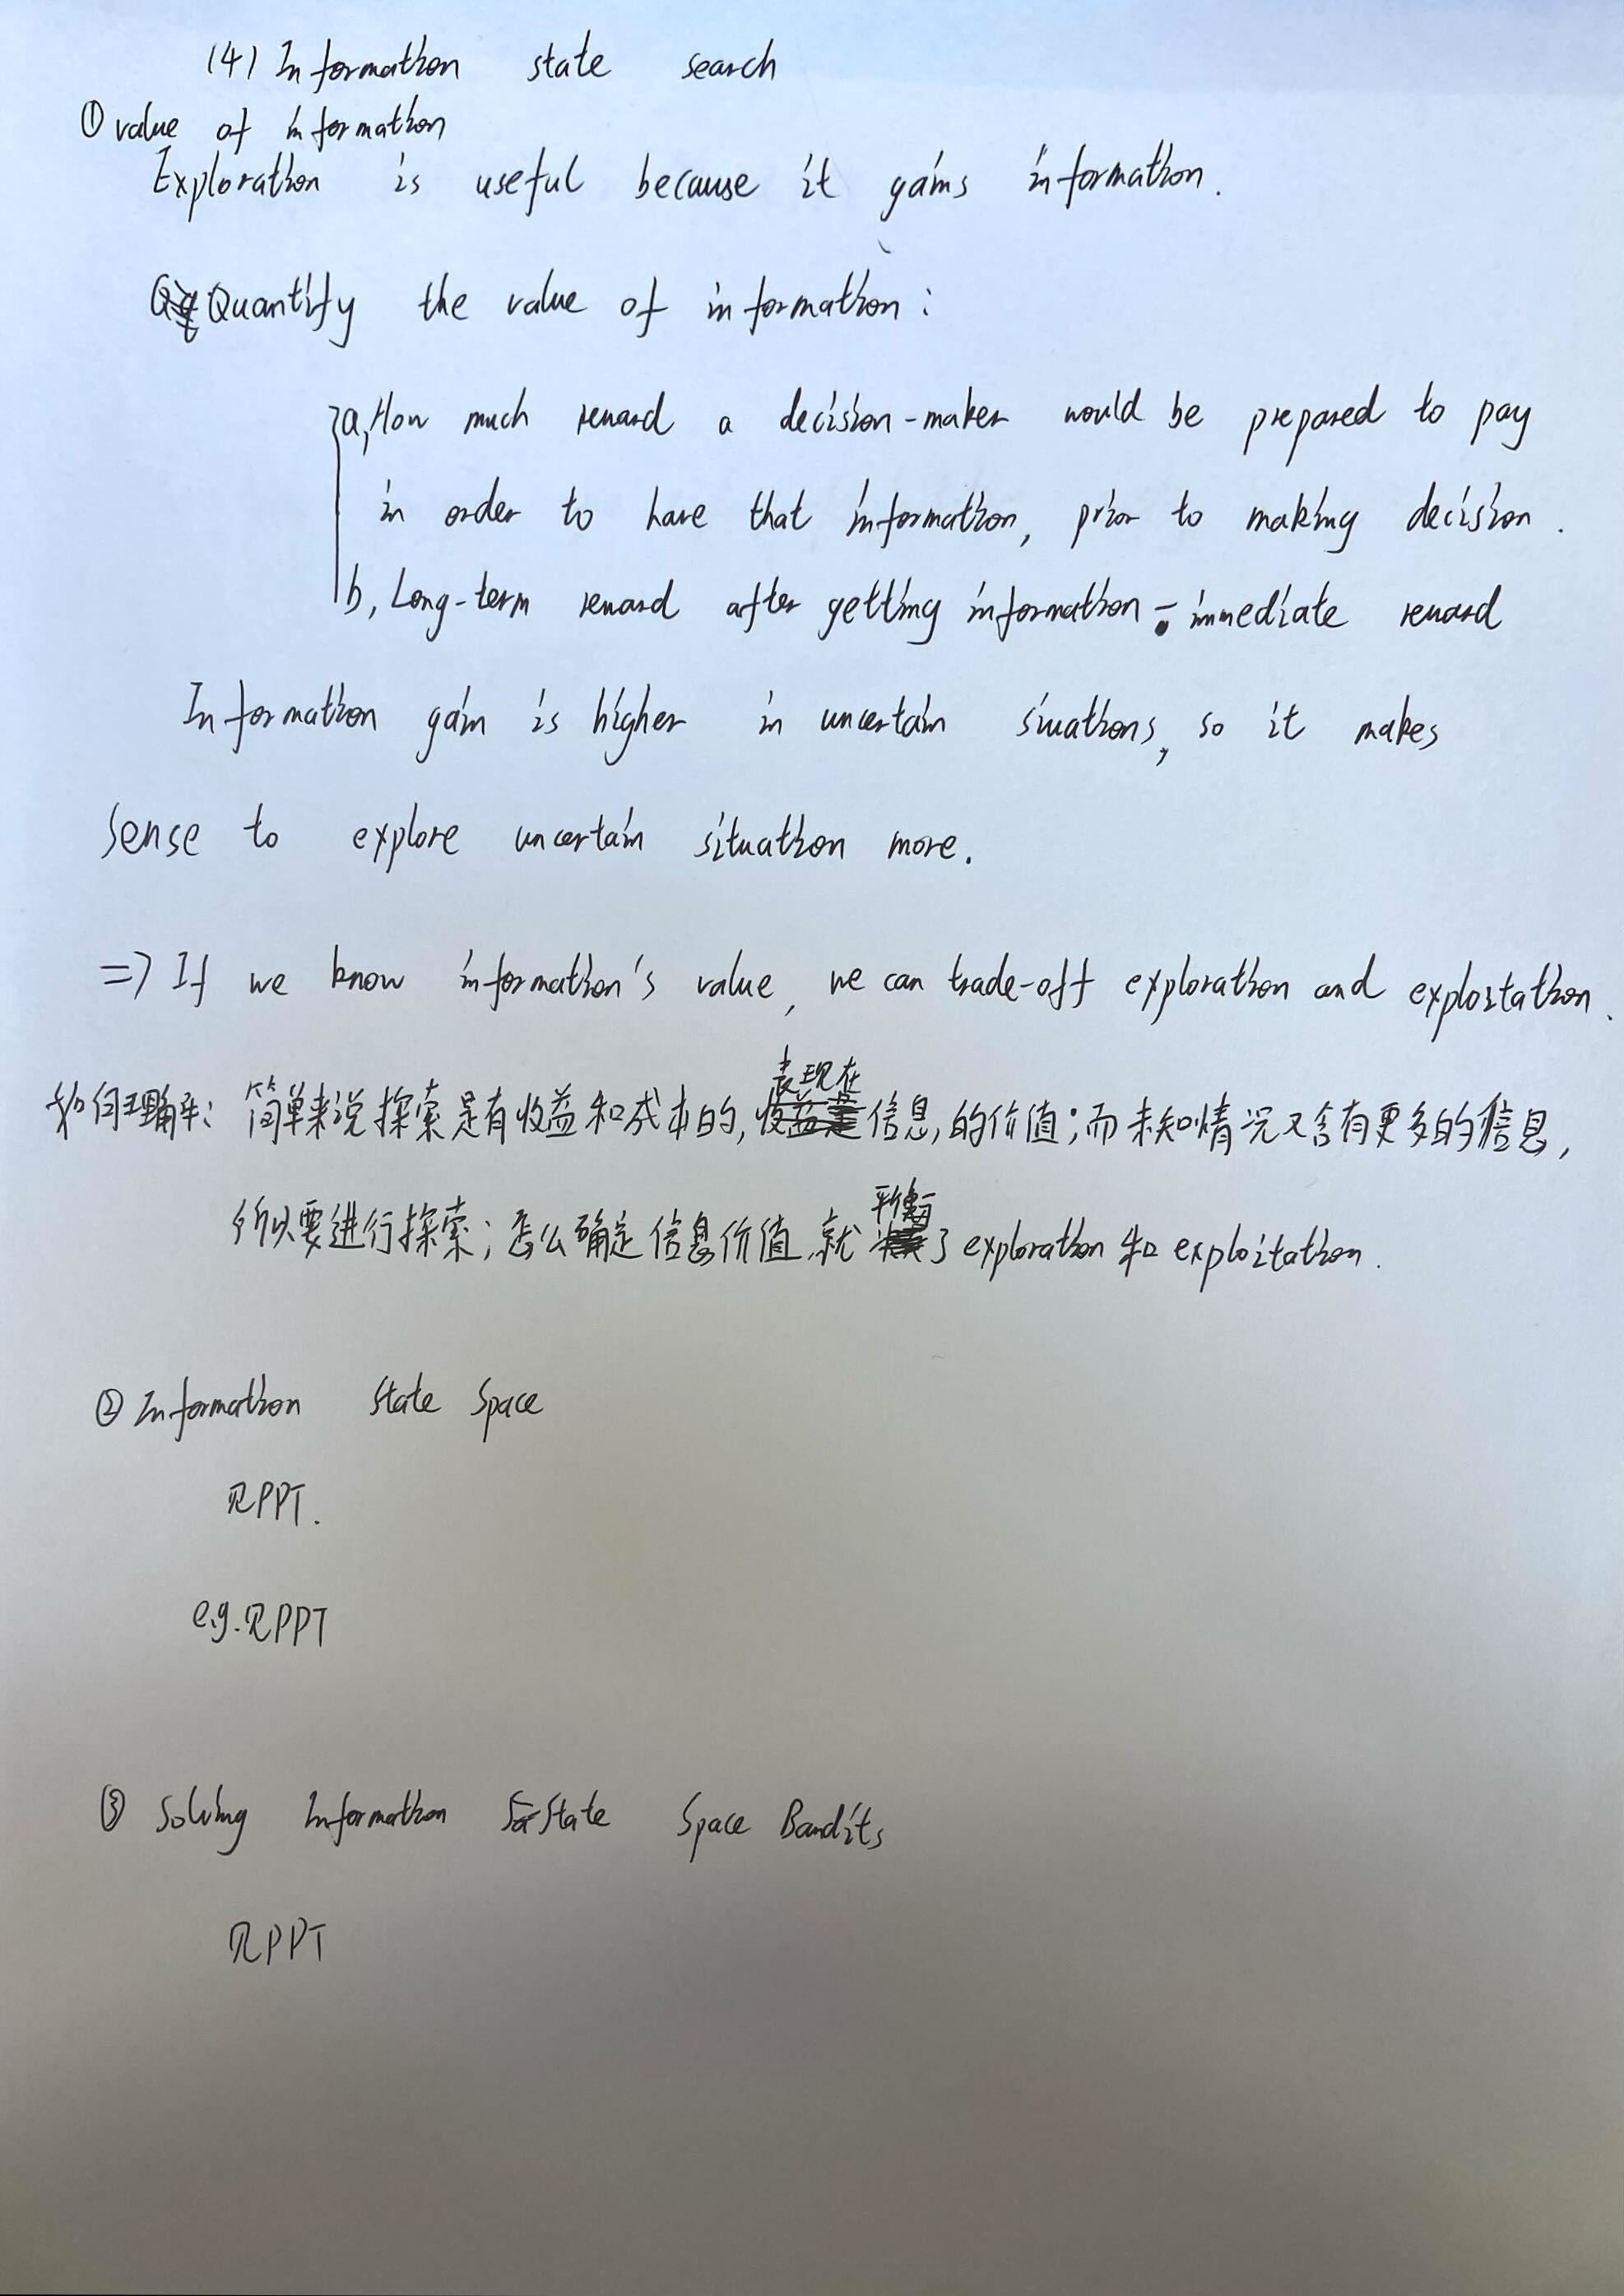 (4) Information state search
① value of information
Exploration is useful because it gains information.
Quantify the value of information:
a, How much reward a decision-maker would be prepared to pay
in order to have that information, prior to making decision.
b, Long-term reward after getting information - immediate reward
Information gain is higher in uncertain siuations, so it makes
sense to explore uncertain situation more.
=> If we know information's value, we can trade-off exploration and exploitation.
如何理解: 简单来说探索是有收益和成本的, 表现在信息, 的价值; 而未知情况又含有更多的信息,
所以要进行探索; 怎么确定信息价值, 就平衡了 exploration 和 exploitation.
② Information State Space
见PPT.
e.g. 见PPT
③ Solving Information State Space Bandits
见PPT